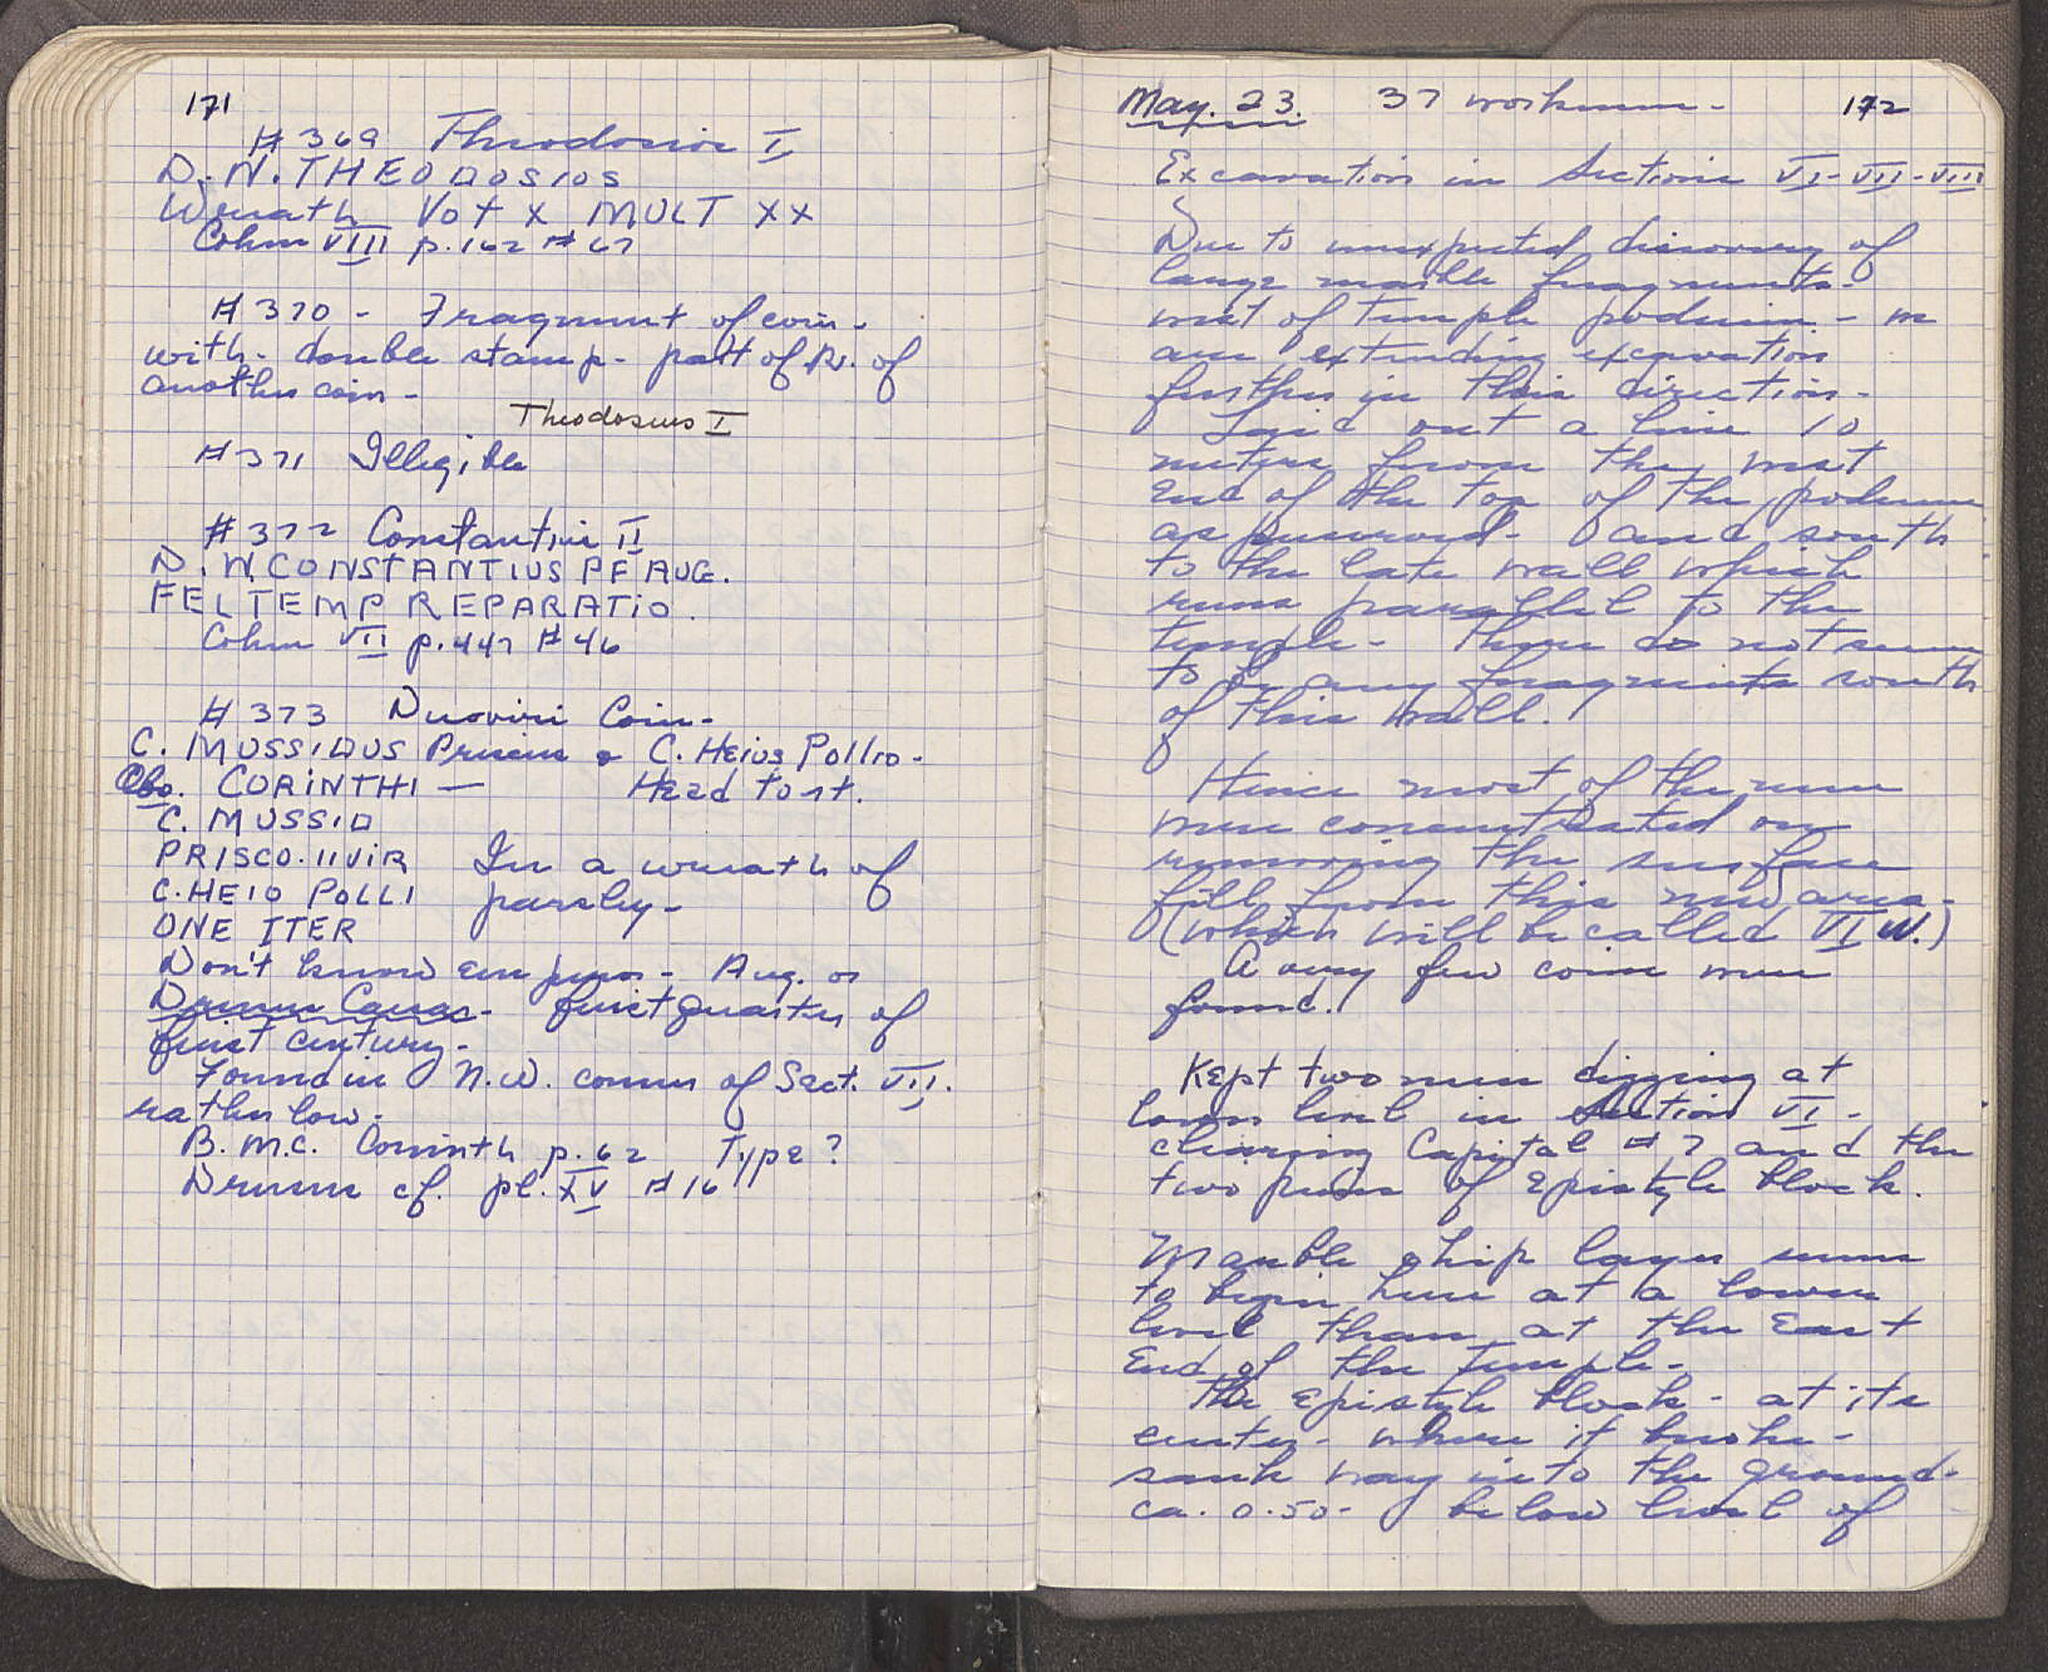 171
# 369 Theodosius I
D. N. THEODOSIOS
Wreath VOT X MULT XX
Cohen VIII p. 162 # 67
# 370 - Fragment of coin -
with - double stamp - part of R. of
another coin -
Theodosius I
# 371 Illegible
# 372 Constantius II
D. N. CONSTANTIUS PF AUG.
FEL TEMP REPARATIO.
Cohen VII p. 447 # 46
# 373 Duoviri Coin -
C. MUSSIDUS Priscus & C. Heius Pollio -
Obv. CORINTHI — Head to rt.
C. MUSSID
PRISCO. IIVIR In a wreath of
C. HEIO POLLI parsley -
ONE ITER
Don't know emperor - Aug. or
Drusus Caesar - first quarter of
first century -
Found in N. W. corner of Sect. VII.
rather low -
B. M. C. Corinth p. 62 Type?
Drusus cf. pl. XV # 16
May. 23. 37 workmen - 172
Excavation in Sections VI - VII - VIII
Due to unexpected discovery of
large marble fragments -
west of temple podium - we
are extending excavation
further in this direction -
Laid out a line 10
meters from the west
end of the top of the podium
as preserved - and south
to the late wall which
runs parallel to the
temple - There do not seem
to be any fragments south
of this wall.
Hence most of the men
were concentrated on
removing the surface
fill from this new area -
(which will be called VI W.)
A very few coins were
found.
Kept two men digging at
lower level in Section VI -
clearing Capital # 7 and the
two pieces of Epistyle block.
Marble chip layer seems
to begin here at a lower
level than at the East
End of the Temple -
The Epistyle block - at its
center - where it broke -
sank way into the ground -
ca. 0.50 - below level of